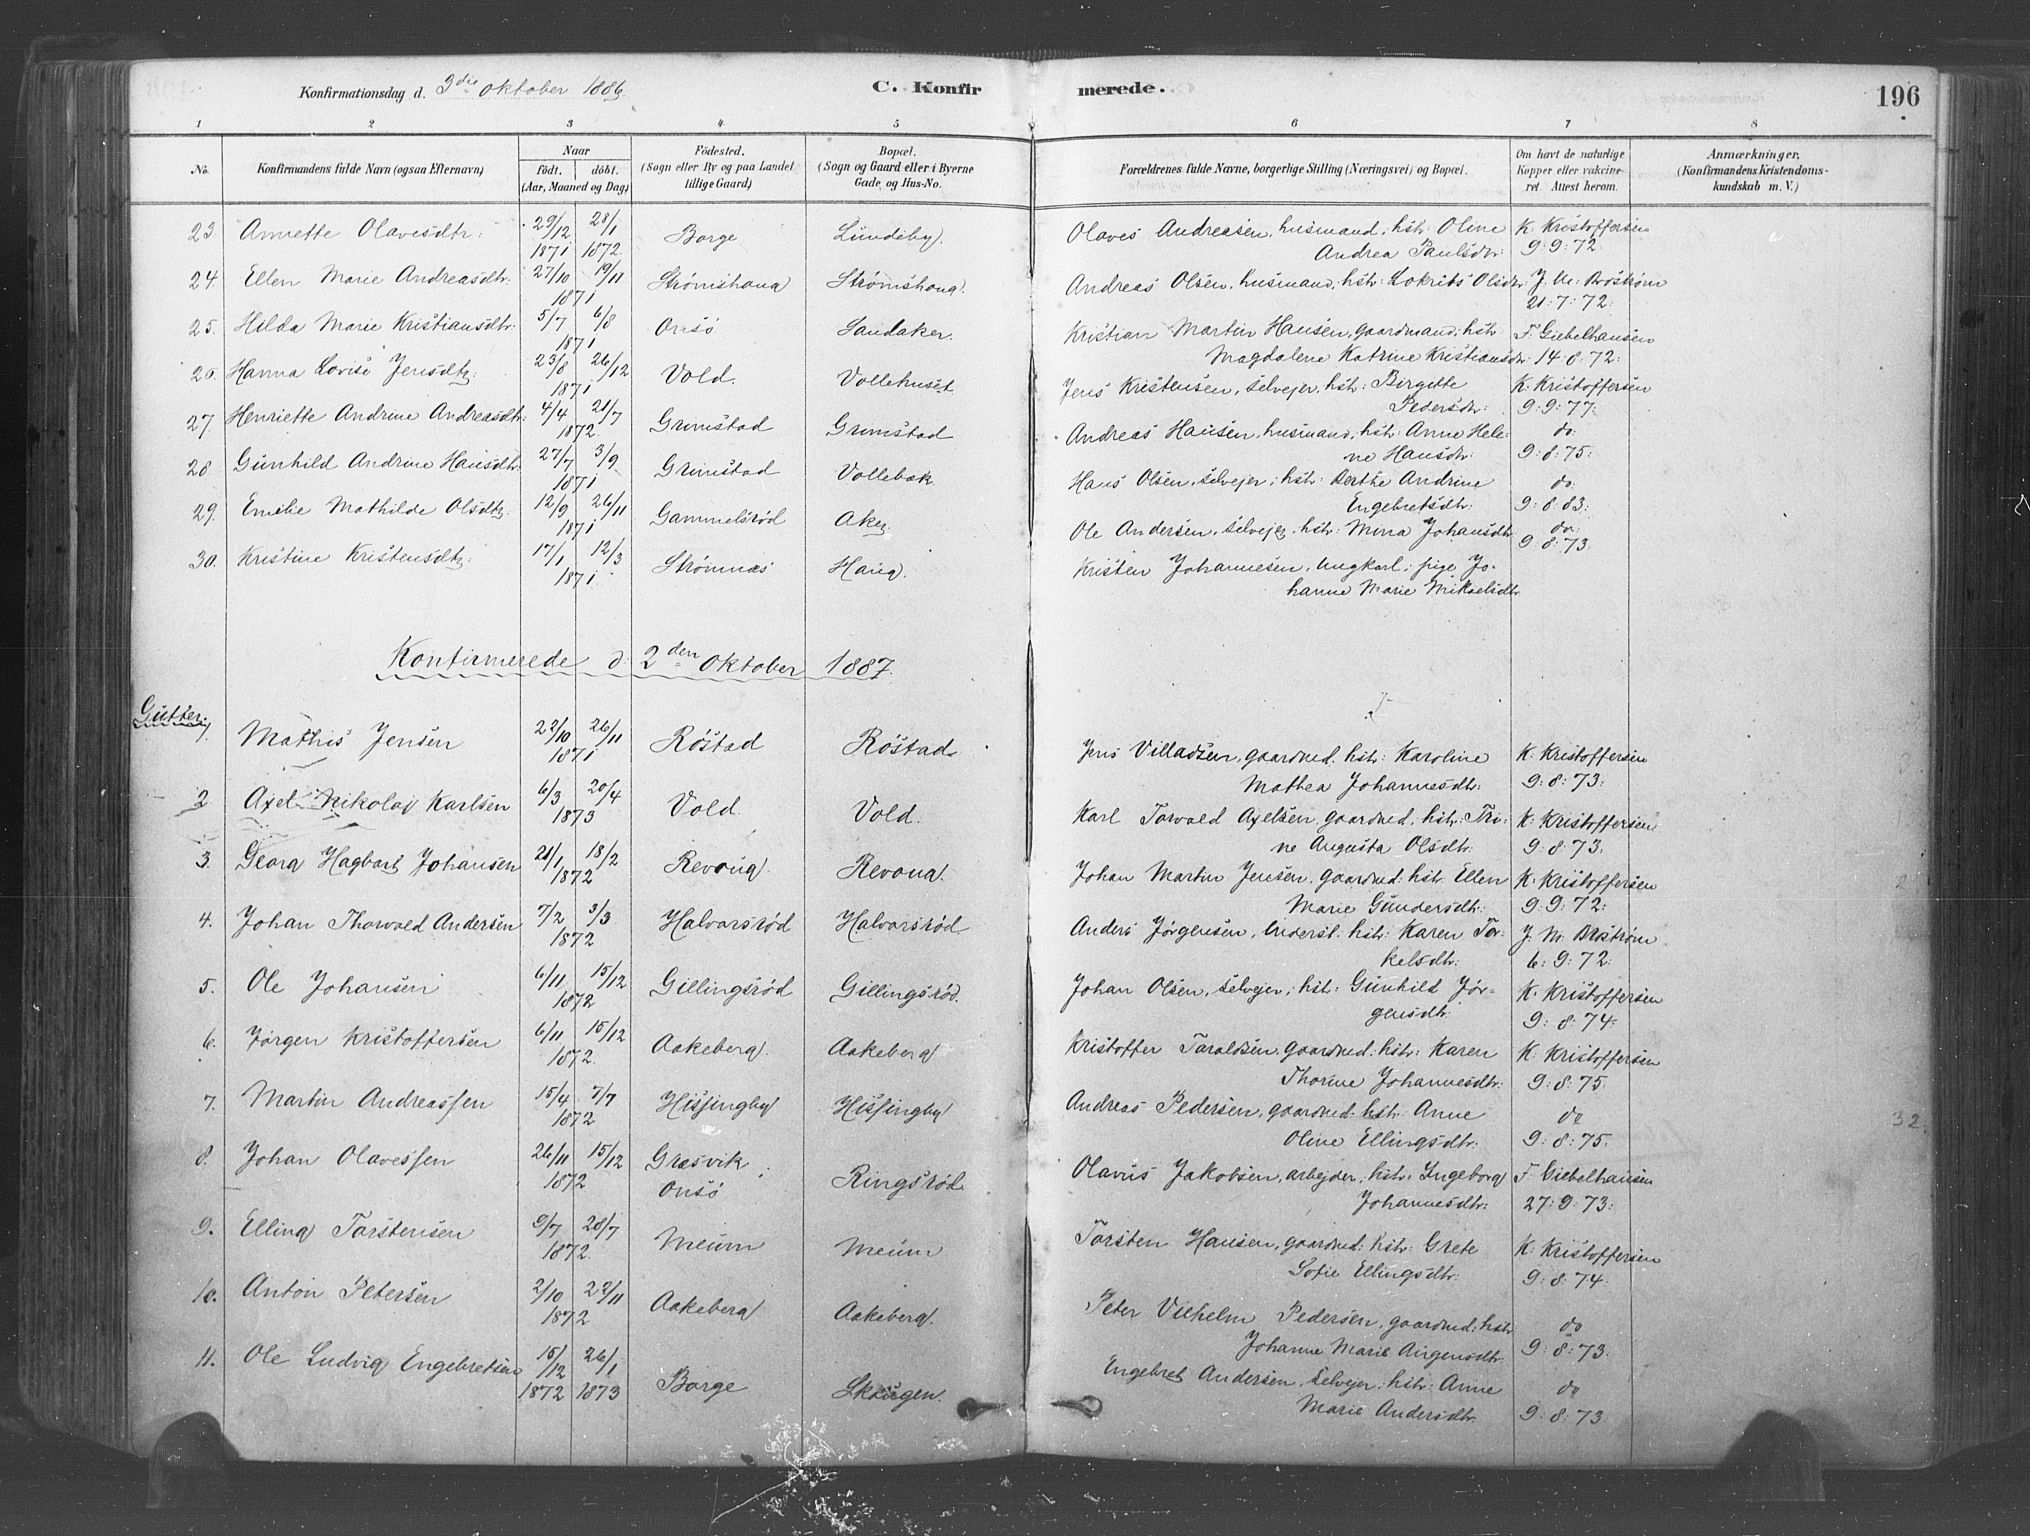 Konfirmationsdag d. 3die Oktober 1886.
C. Konfirmerede.
196
1 2 3 4 5 6 7 8
No. Konfirmandens fulde Navn (ogsaa Efternavn) Naar födt. döbt. (Aar, Maaned og Dag) Födested. (Sogn eller By og paa Landet lillige Gaard) Bopæl. (Sogn og Gaard eller i Byerne Gade og Hus-No. Forældrenes fulde Navne, borgerlige Stilling (Næringsvei) og Bopæl. Om havt de naturlige Kopper eller vakcineret. Attest herom. Anmærkninger. (Konfirmandens Kristendomskundskab m. V.)
23. Annette Olavesdtr: 29/12 1871 28/1 1872 Borge Lundeby. Olaves Andreasen, husmand, hstr: Oline Andrea Paulsdtr: K. Kristoffersen 9:9:72
24. Ellen Marie Andreasdtr: 27/10 19/11 1871 Strømshaug Strømshaug. Andreas Olsen, husmand, hstr: Lokrits Olsdtr J. M. Broström 21:7:72:
25. Hilda Marie Kristiansdtr: 5/7 6/8 1871 Onsö Sandaker. Kristian Martin Hansen, gaardmand: hstr Magdalene Katrine Kristiansdtr F. Giebelhausen 14:8:72:
26. Hanna Lovise Jensdtr: 23/8 26/12 1871 Vold. Vollehuset. Jens Kristensen, selvejer, hstr: Birgitte Pedersdtr: K. Kristoffersen 9:9:77:
27. Henriette Andrine Andreasdtr: 4/4 21/7 1872. Grimstad Grimstad Andreas Hansen, husmand, hstr: Anne Helene Hansdtr: do: 9:8:75:
28. Gunhild Andrine Hansdtr. 27/7 3/9 1871 Grimstad Vollebæk Hans Olsen, selvejer, hstr: Berthe Andrine Engebretsdtr: do 9:8:83:
29. Emilie Mathilde Olsdtr: 12/9 26/11 1871 Gammelsröd Aker Ole Andersen, selvejer, hstr: Mina Johansdtr do: 9:8:73.
30. Kristine Kristensdtr: 17/1 12/3 1871. Strömnæs Haug. Kristen Johannesen, ungkarl, pige Johanne Marie Mikaelsdtr
Konfirmerede d. 2den Oktober 1887.
Gutter:
1. Mathis Jensen 22/10 26/11 1871 Röstad Röstad. Jens Villadsen, gaardmd. hstr: Karoline Mathea Johannesdtr: K. Kristoffersen 9:8:73:
2 Axel Nikolaj Karlsen 6/3 20/4 1873 Vold. Vold. Karl Torvald Axelsen, gaardmd. hstr: Trine Augusta Olsdtr: K. Kristoffersen 9:8:73.
3. Georg Hagbart Johansen 21/1 18/2 1872 Revoug. Revoug. Johan Martin Jensen, gaardmd: hstr. Ellen Marie Gundersdtr: K. Kristoffersen 9:9:72:
4. Johan Thorvald Andersen 7/2 3/3 1872 Halvarsröd Halvarsröd Anders Jörgensen, Inderst. hstr: Karen Torkelsdtr: J. M. Broström 6:9:72:
5. Ole Johansen 6/11 15/12 1872 Gillingsröd Gillingsröd. Johan Olsen, selvejer, hstr: Gunhild Jörgensdtr: K. Kristoffersen 9:8:74:
6. Jörgen Kristoffersen 6/11 15/12 1872. Aakeberg. Aakeberg Kristoffer Taraldsen, gaardmd: hstr: Karen Thorine Johannesdtr: K. Kristoffersen 9:8:75.
7. Martin Andreassen 15/4 7/7 1872 Hissingby Hissingby Andreas Pedersen, gaardmd: hstr: Anne Oline Ellingsdtr: do 9:8:75:
32.
8. Johan Olavessen 26/11 15/12 1872 Græsvik Onsö Ringsröd. Olavus Jakobsen, arbejder, hstr: Ingeborg Johannesdtr: F. Giebelhausen 27:9:73:
9. Elling Torstensen 9/7 28/7 1872. Meum Meum Torsten Hansen, gaardmd: hstr: Grete Sofie Ellingsdtr: K. Kristoffersen 9:8:74:
10. Anton Petersen 2/10 22/11 1872 Aakeberg Aakeberg. Peter Vilhelm Pedersen, gaardmd: hstr Johanne Marie do 9:8:73:
11. Ole Ludvig Engebretsen 15/12 1872 26/1 1873 Borge Skougen. Engebret Andersen, selvejer: hstr: Anne Marie Andersdtr. do 9:8:73